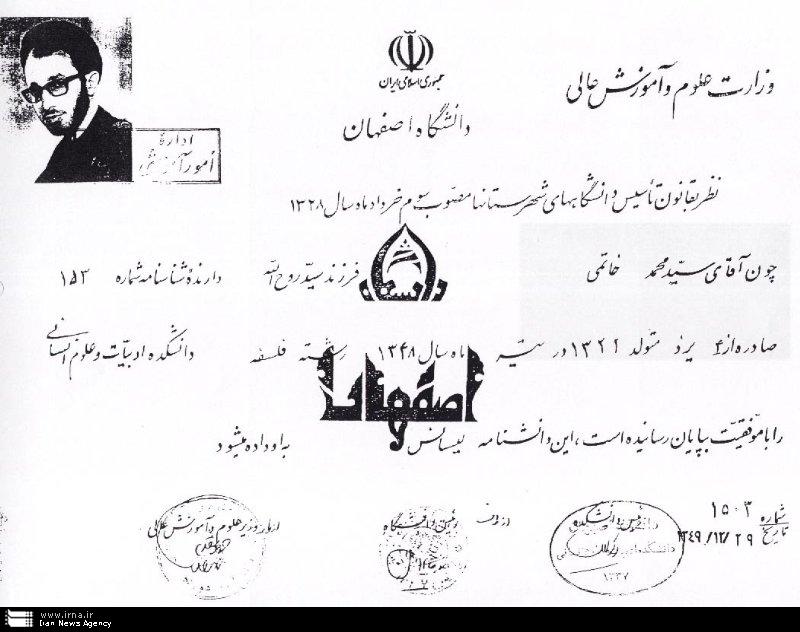 جمهوری اسلامی ایران
وزارت علوم و آموزش عالی
دانشگاه اصفهان
اداره
امور آموزشی
نظر بقانون تأسیس دانشگاههای شهرستانها مصوب سوم خرداد ماه سال ۱۳۲۸
چون آقای سید محمد خاتمی فرزند سید روح الله دارندهٔ شناسنامه شماره ۱۵۳
صادره از یزد متولد ۱۳۲۲ در تیر ماه سال ۱۳۴۸ رشته فلسفه دانشکده ادبیات و علوم انسانی
دانشگاه
اصفهان
را با موفقیت بپایان رسانیده است، این دانشنامه لیسانس به او داده میشود
شماره ۱۵۰۳
تاریخ ۱۳۴۹/۱۲/۲۹
رئیس دانشکده
۱۳۳۷
از طرف رئیس دانشگاه
از طرف وزیر علوم و آموزش عالی
www.irna.ir
Iran News Agency